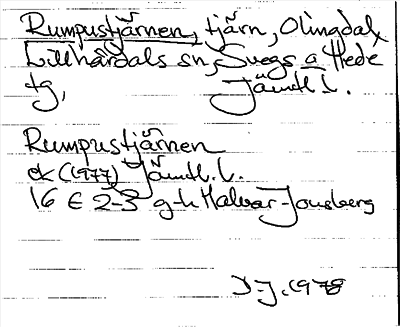 Rumpustjärnen, tjärn, Olingdal,
Lillhärdals sn, Svegs a Hede
tg, Jämtl L.
Rumpustjärnen
ek (1977) Jämtl. L.
16 E 2-3 g-h Malvar-Jonsberg
D-J. 1978